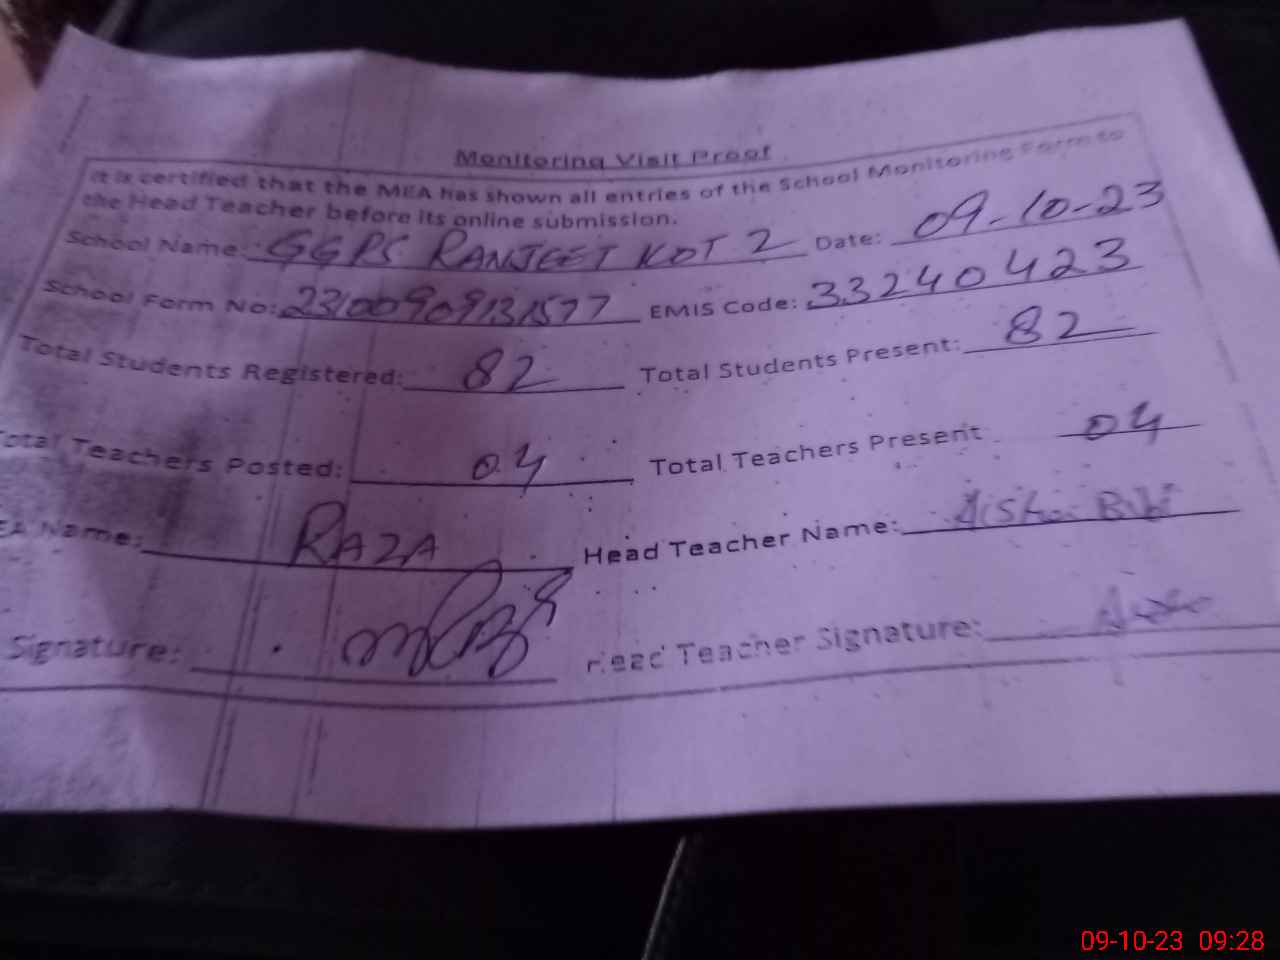 Monitoring Visit Proof
It is certified that the MEA has shown all entries of the School Monitoring Form to
the Head Teacher before its online submission.
School Name: GGPS RANJEET KOT 2 Date: 09-10-23
School Form No: 231009909131577 EMIS Code: 33240423
Total Students Registered: 82 Total Students Present: 82
Total Teachers Posted: 04 Total Teachers Present 04
EA Name: RAZA Head Teacher Name: Aisha Bibi
Signature: Head Teacher Signature:
09-10-23 09:28